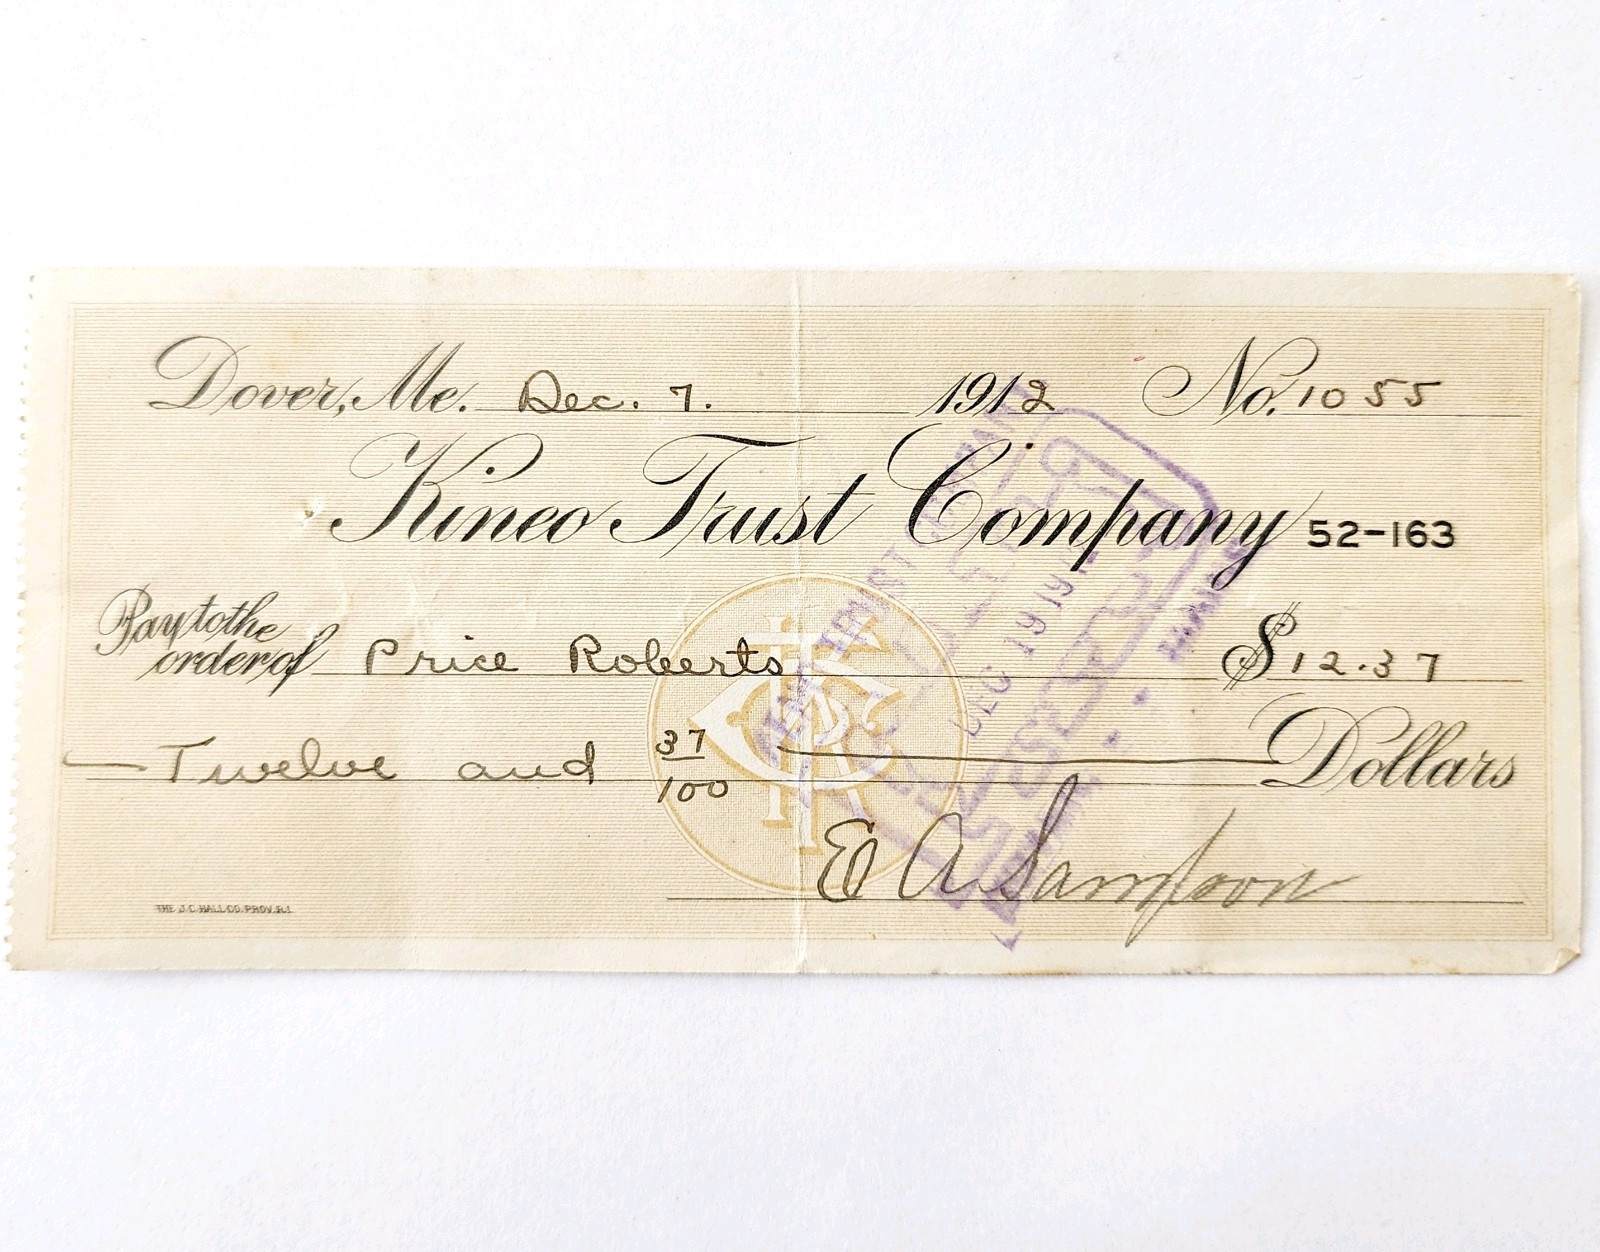 Dover, Me. Dec. 7. 1912 No. 1055
Kineo Trust Company 52-163
Pay to the
order of Price Roberts $12.37
Twelve and 37/100 Dollars
E A Sampson
THE J.C. HALL CO. PROV. R.I.
TRUST COMPANY
DEC 19 191